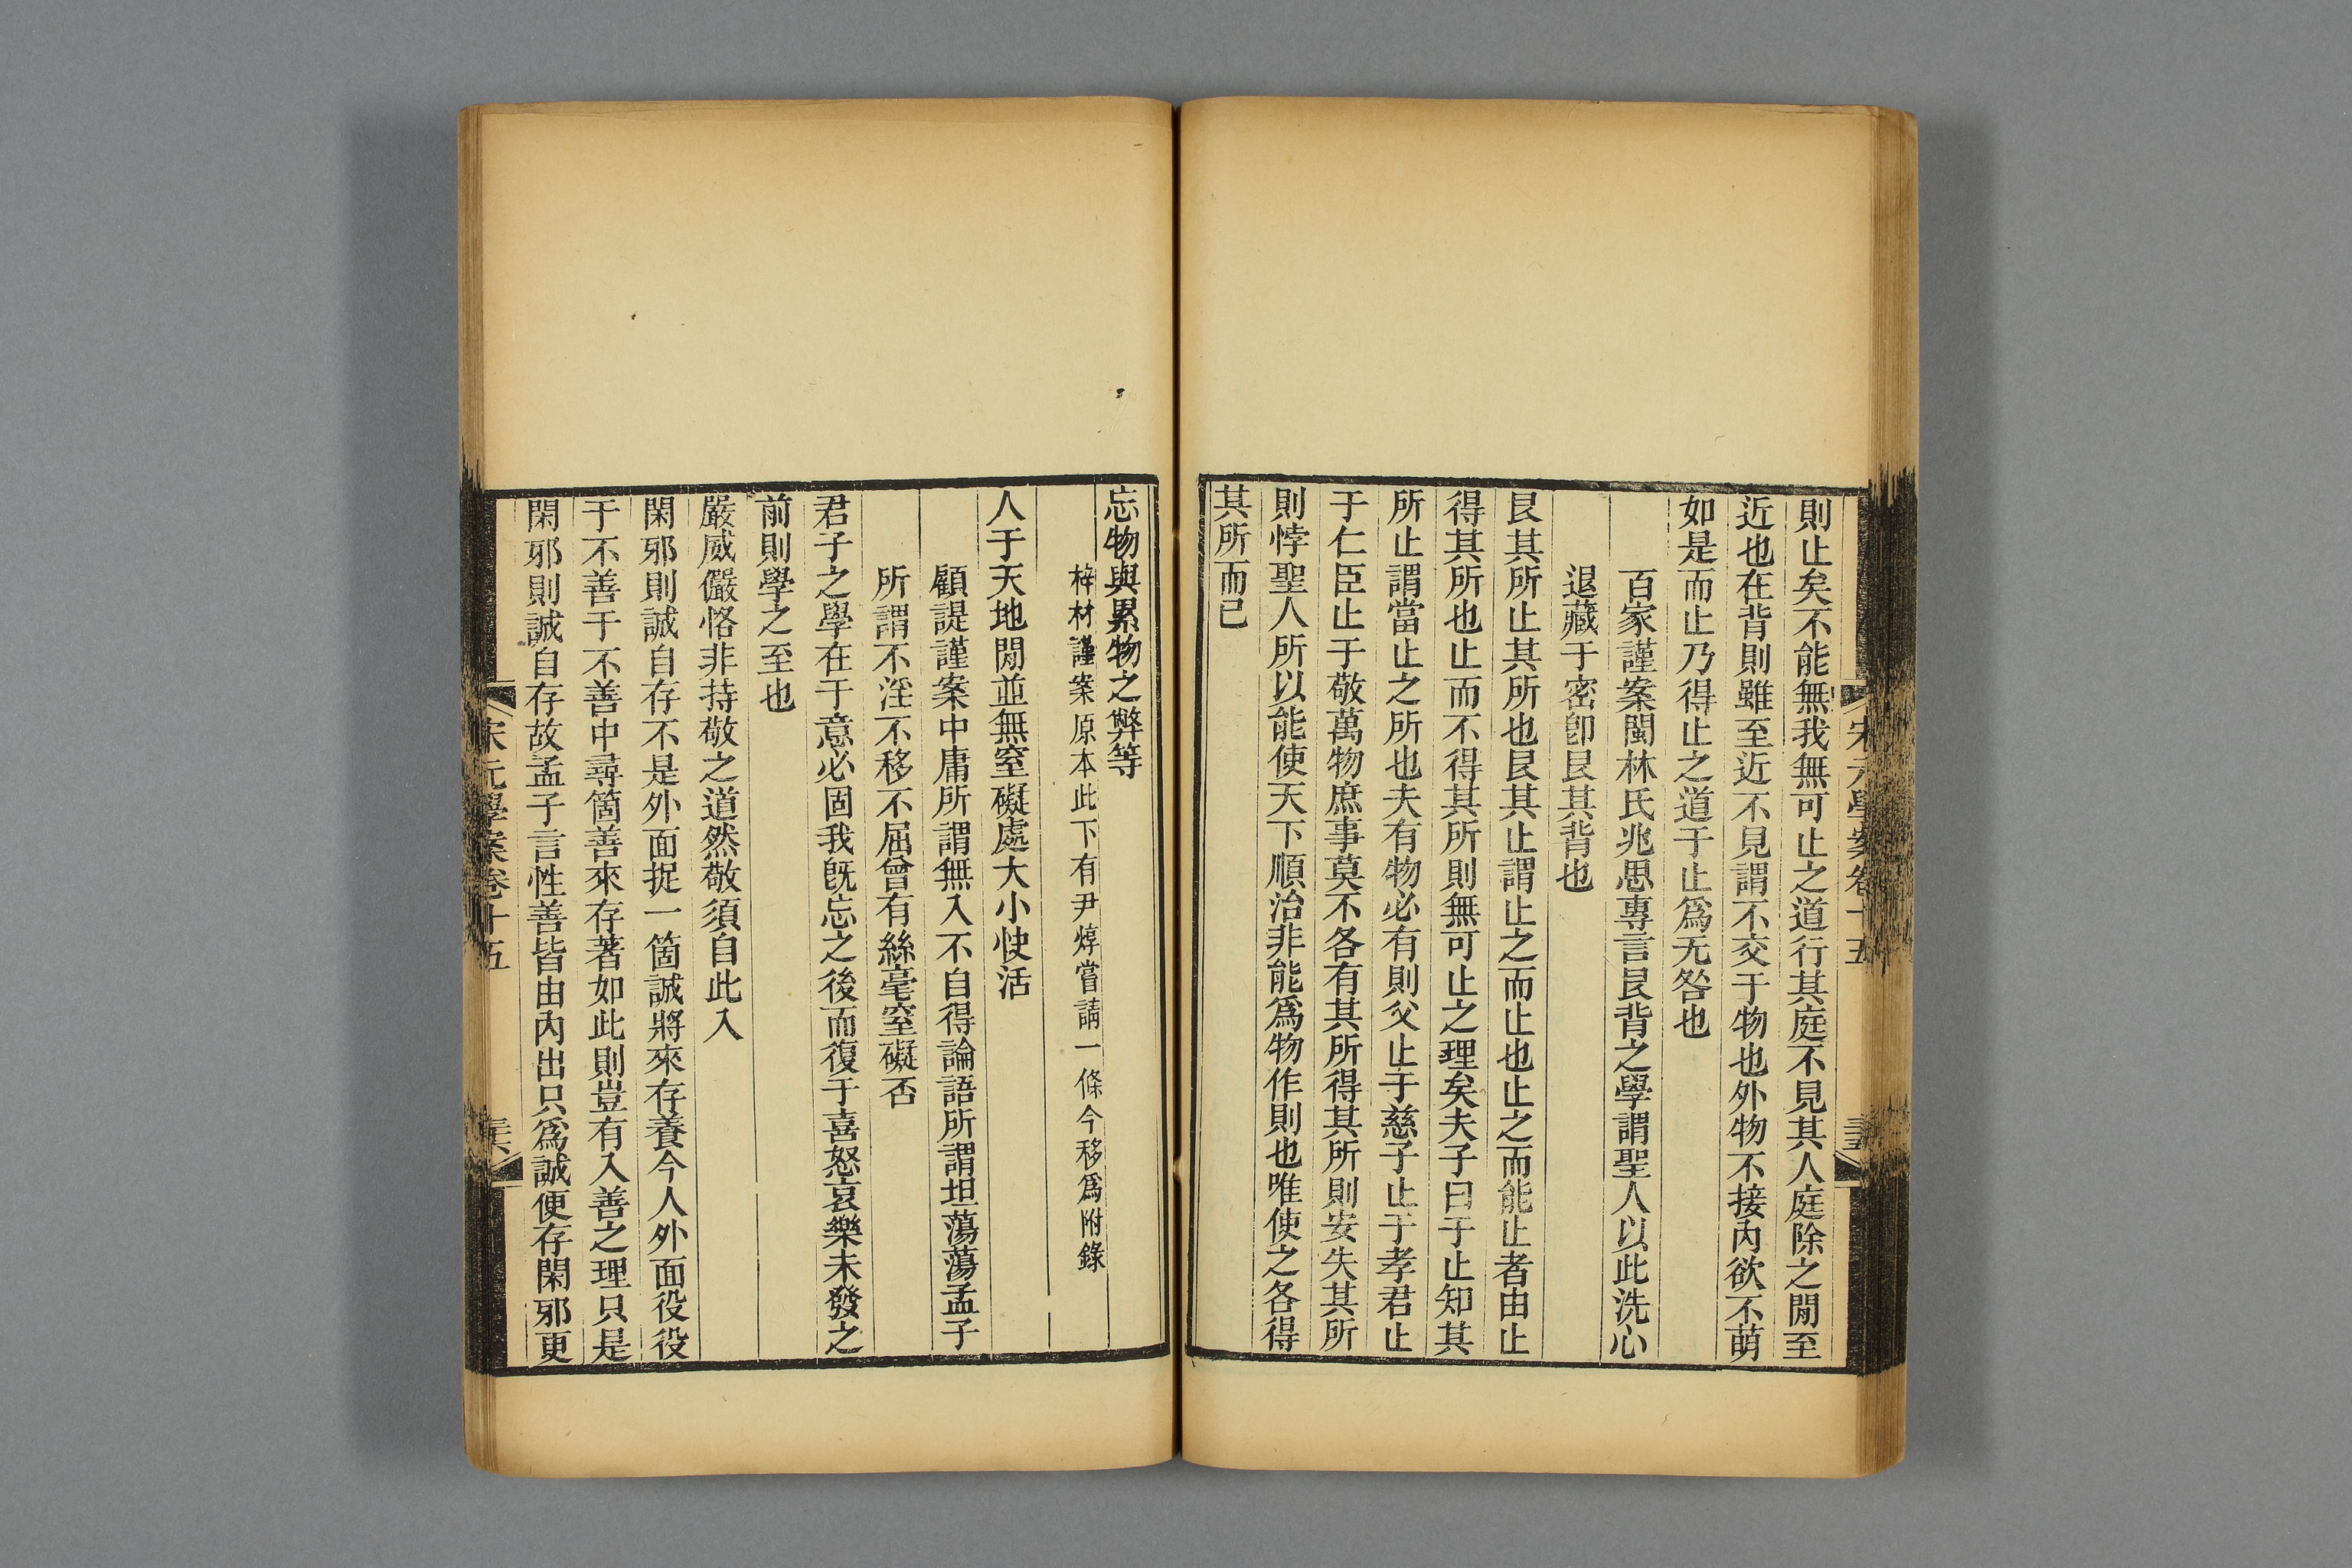 宋元學案卷十五
三五
則止矣不能無我無可止之道行其庭不見其人庭除之閒至
近也在背則雖至近不見謂不交于物也外物不接內欲不萌
如是而止乃得止之道于止爲无咎也
百家謹案閩林氏兆思專言艮背之學謂聖人以此洗心
退藏于密卽艮其背也
艮其所止其所也艮其止謂止之而止也止之而能止者由止
得其所也止而不得其所則無可止之理矣夫子曰于止知其
所止謂當止之所也夫有物必有則父止于慈子止于孝君止
于仁臣止于敬萬物庶事莫不各有其所得其所則安失其所
則悖聖人所以能使天下順治非能爲物作則也唯使之各得
其所而已
忘物與累物之弊等
梓材謹案原本此下有尹焞嘗請一條今移爲附錄
人于天地閒並無窒礙處大小快活
顧諟謹案中庸所謂無入不自得論語所謂坦蕩蕩孟子
所謂不淫不移不屈曾有絲毫窒礙否
君子之學在于意必固我旣忘之後而復于喜怒哀樂未發之
前則學之至也
嚴威儼恪非持敬之道然敬須自此入
閑邪則誠自存不是外面捉一箇誠將來存養今人外面役役
于不善于不善中尋箇善來存著如此則豈有入善之理只是
閑邪則誠自存故孟子言性善皆由內出只爲誠便存閑邪更
宋元學案卷十五
三六